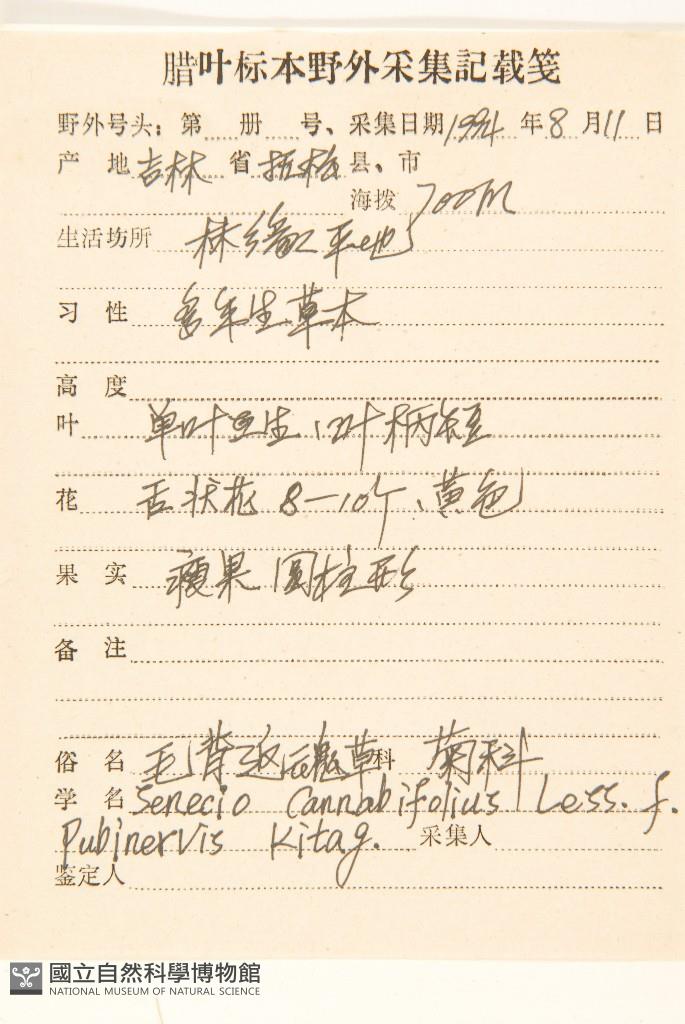 腊叶标本野外采集記载笺
野外号头：第 册 号、采集日期1994年8月11日
产 地 吉林 省 抚松 县、市
海拨 700m
生活场所 林缘 平地
习 性 多年生草本
高 度
叶 单叶互生，叶柄短
花 舌状花 8—10个、黄色
果 实 瘦果 圆柱形
备 注
俗 名 毛背返魂草 科 菊科
学 名 Senecio Cannabifolius Less. f.
Pubinervis Kitag. 采集人
鉴定人
國立自然科學博物館
NATIONAL MUSEUM OF NATURAL SCIENCE